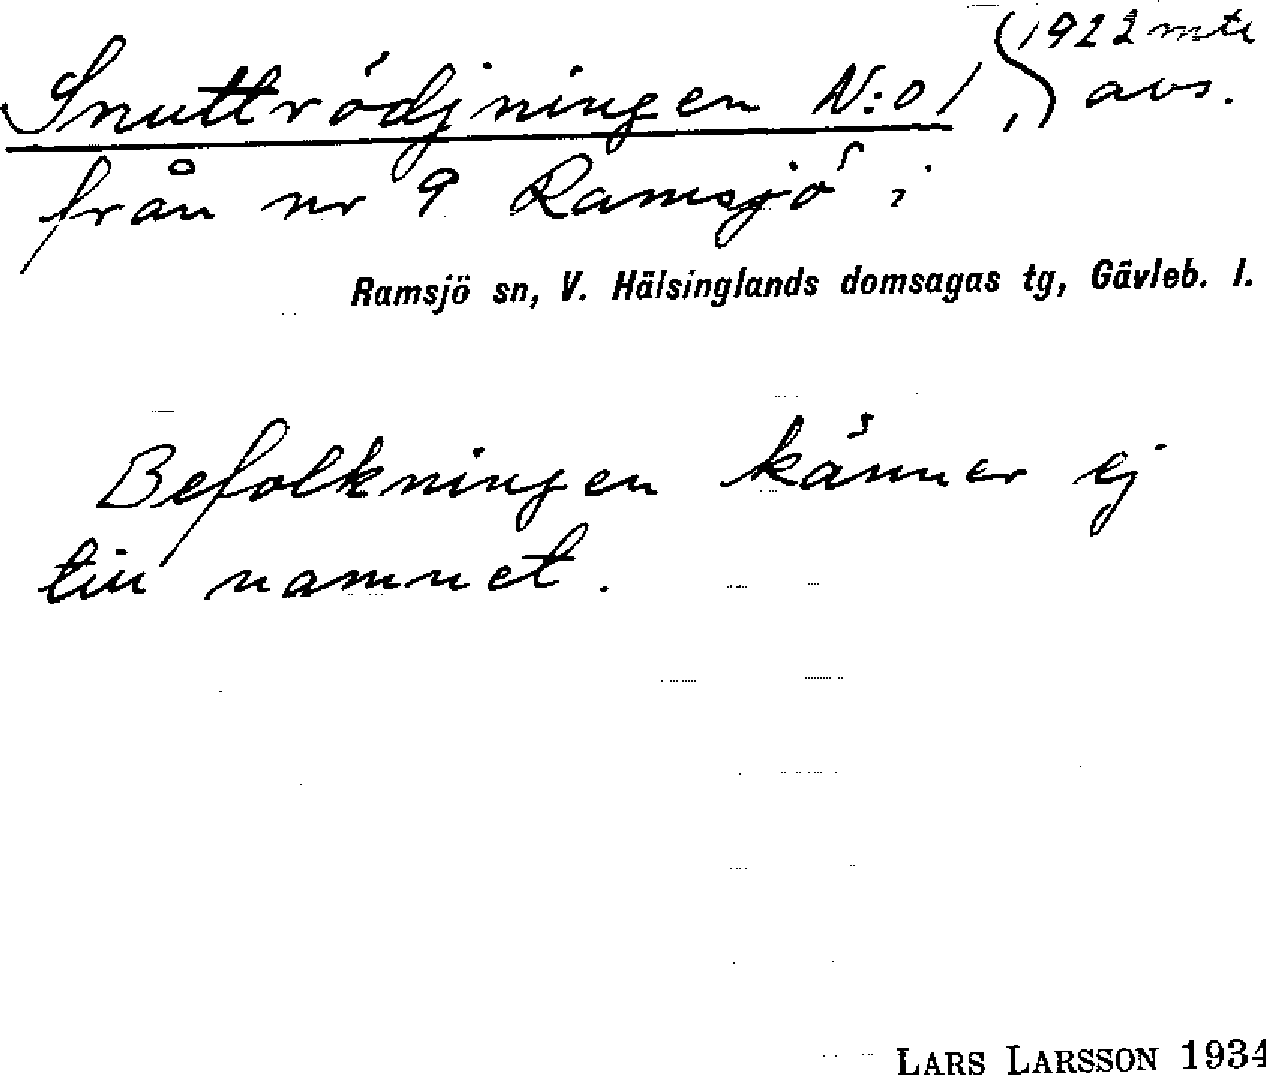 Snuttrödjningen N:o 1, 1922 mte
avs.
från nr 9 Ramsjö i
Ramsjö sn, V. Hälsinglands domsagas tg, Gävleb. l.
Befolkningen känner ej
till namnet.
LARS LARSSON 1934